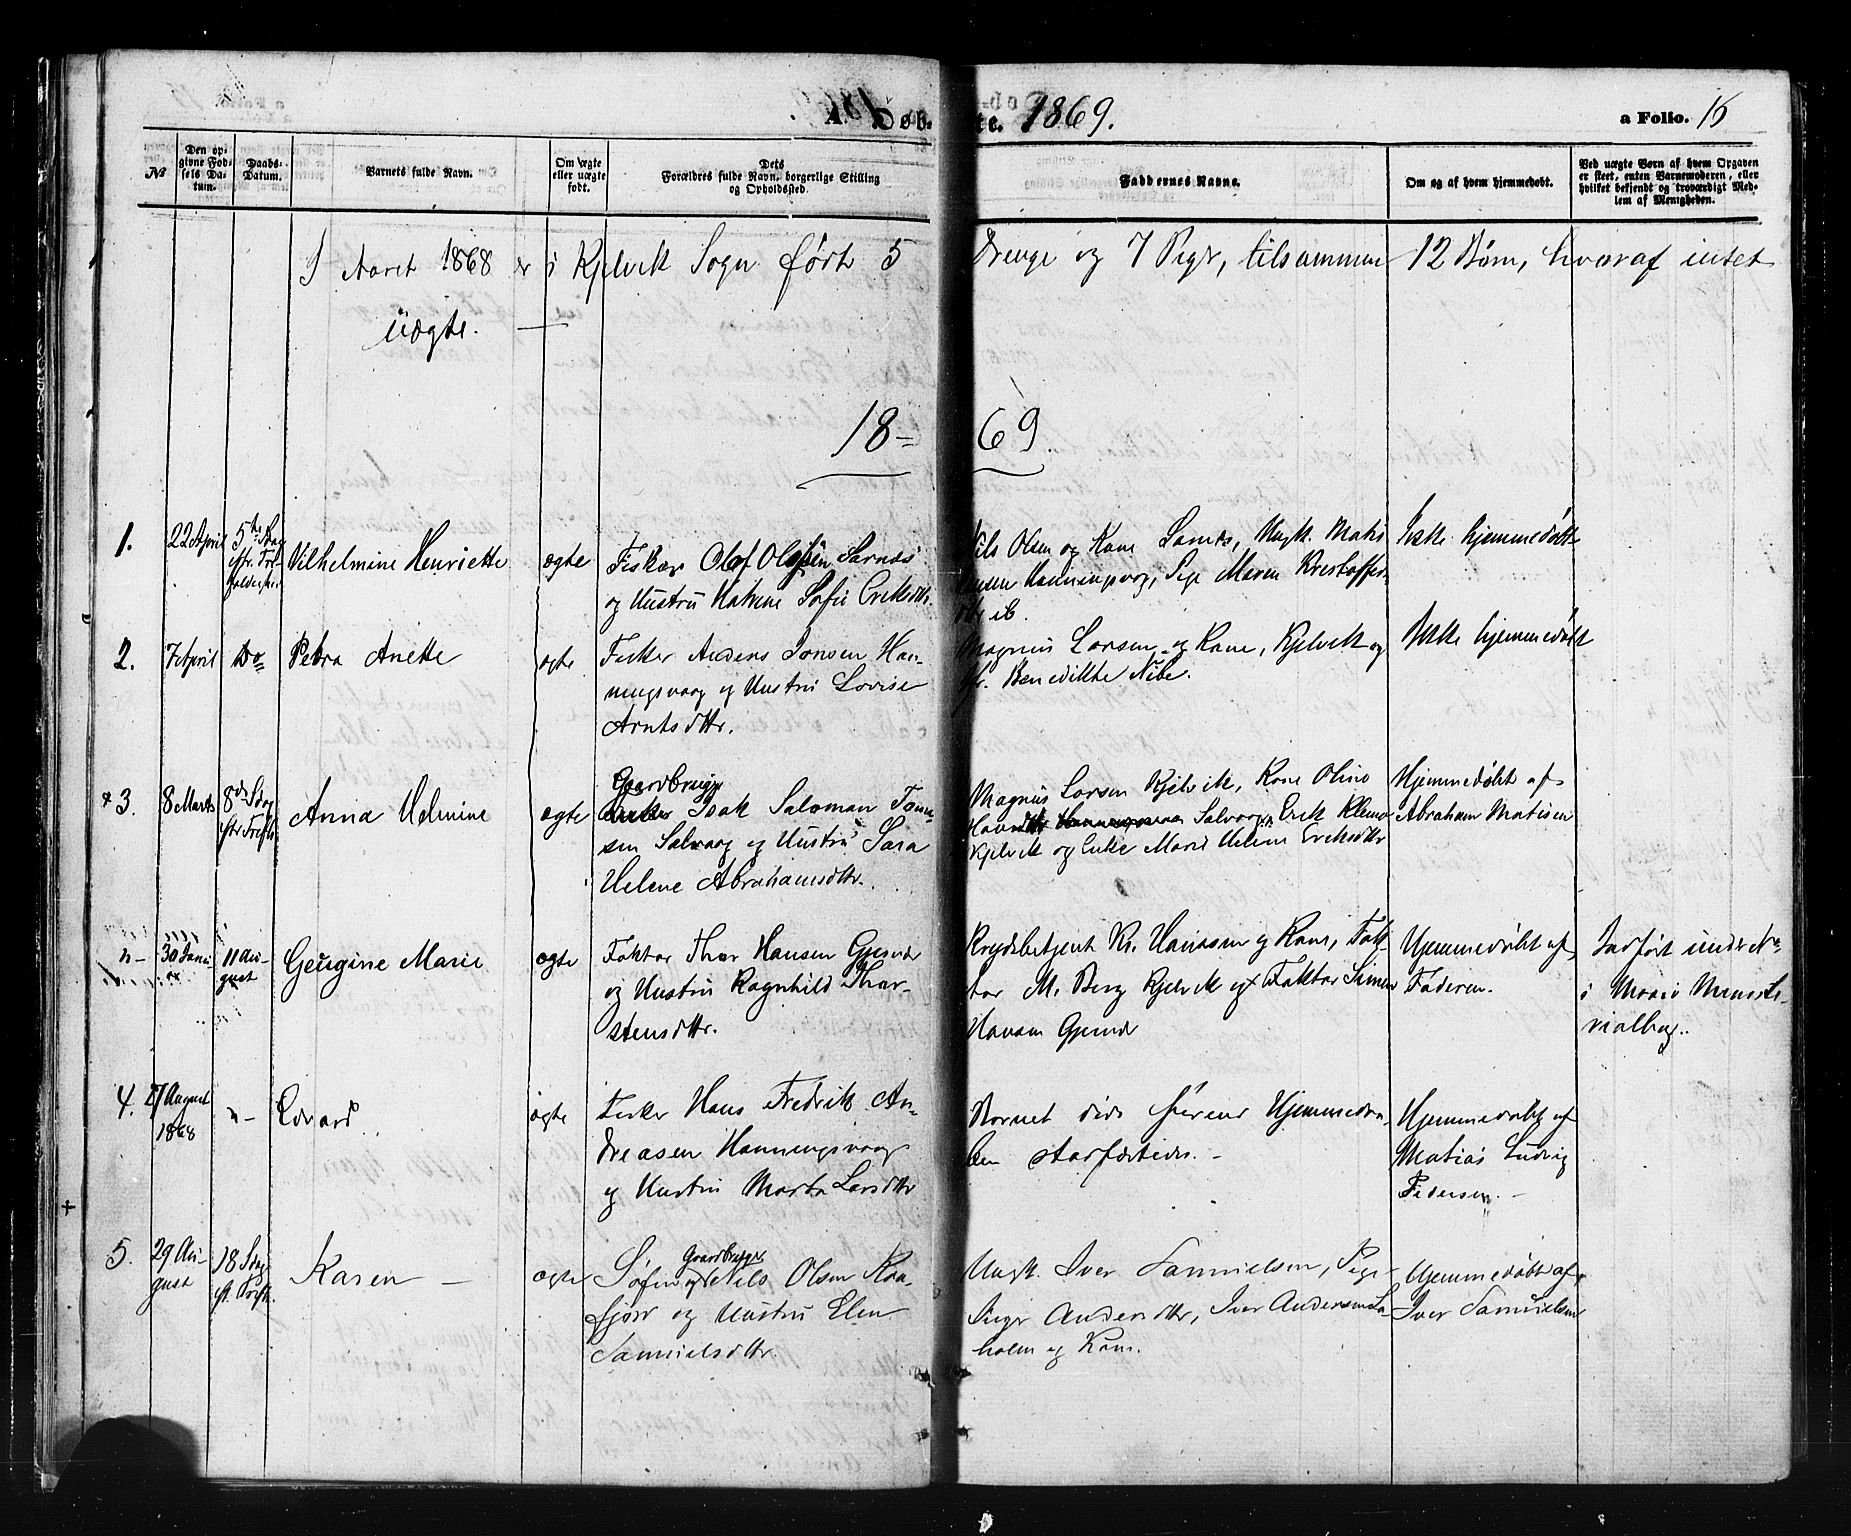 Døb-te. 1869.
a Folio. 16
No
Den op-
givne Fød-
sels Da-
tum.
Daabs-
Datum.
Barnets fulde Navn.
Om ægte
eller uægte
født.
Dets
Forældres fulde Navn, borgerlige Stilling
og Opholdssted.
Faddernes Navne.
Om og af hvem hjemmedøbt.
Ved uægte Børn af hvem Opgaven
er skeet, enten Barnemoderen, eller
hvilket bekjendt og troværdigt Med-
lem af Menigheden.
I Aaret 1868 er i Kjelvik Sogn født 5 Drenge og 7 Piger, tilsammen 12 Børn, hvoraf intet
uægte.
18-69.
1.
22 April
5te Sdag
eftr. Tre-
Vilhelmine Henriette
ægte
Fisker Olaf Olsen Sarnes
og Hustru Sofie Eriksdttr.
Nils Olsen og Kone Sarnes, Ungk. Matis
Honningsvog, Pige Maren Kristoffer-
dttr ib.
Ikke hjemmedøbt
2.
7 April
Do
Petra Anette
ægte
Fisker Anders Jonsen Hon-
ningsvaag og Hustru Lovise
Arntsdttr.
Magnus Larsen og Kone, Kjelvik og
Benedikte Nibe.
Ikke hjemmedøbt
3.
8 Marts
8de Sdag
eftr Trefts
Anna Helmine
ægte
Gaardbruger
Isak Saloman Tom-
sen Salvaag og Hustru Sara
Helene Abrahamsdttr.
Magnus Larsen Kjelvik, Kone Oline
Salvaag, Erik
Kjelvik og Enke Marit Helene Eriksdttr
Hjemmedøbt af
Abraham Matisen
"-
30 Janu-
ar
11 Au-
gust
Geugine Marie
ægte
Faktor Thor Hansen Gjesvær
og Hustru Ragnhild Thor-
stensdttr.
Krydsbetjent Kr. Hanssen og Kone, Fak-
tor M. Berg Kjelvik og Faktor Simen
Hansen Gjesvær
Hjemmedøbt af
Faderen.
Indført under No
i Maasø Ministe-
rialbog.
4.
21 August
1868
"-
Edvard
ægte
Fisker Hans Fredrik An-
dreasen Honningsvaag
og Hustru Marta Larsdttr
Barnet døde førend Hjemmedaa-
ben stadfæstedes. -
Hjemmedøbt af
Matias Ludvig
Pedersen. -
5.
29 Au-
gust
18 Sdag
ft. Trefts.
Karen -
ægte
Gaardbruger
Søfin og Nils Olsen Kaa-
fjord og Hustru Elen
Samuelsdttr.
Ungk. Iver Samuelsen, Pige
Inger Andersdttr, Iver Andersen La-
holm og Kone.
Hjemmedøbt af
Iver Samuelsen